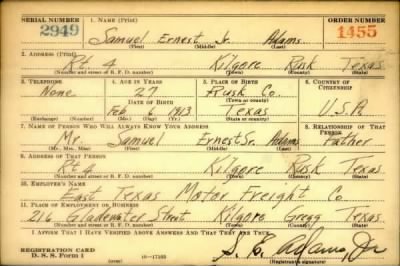 SERIAL NUMBER 1. NAME (Print) ORDER NUMBER
2949 Samuel Ernest Jr. Adams 1455
(First) (Middle) (Last)
2. ADDRESS (Print)
Rt. 4 Kilgore Rusk Texas
(Number and street or R. F. D. number) (Town) (County) (State)
3. TELEPHONE 4. AGE IN YEARS 5. PLACE OF BIRTH 6. COUNTRY OF CITIZENSHIP
None 27 Rusk Co.
DATE OF BIRTH (Town or county)
Feb 6 1913 Texas U.S.A.
(Exchange) (Number) (Mo.) (Day) (Yr.) (State or country)
7. NAME OF PERSON WHO WILL ALWAYS KNOW YOUR ADDRESS 8. RELATIONSHIP OF THAT PERSON
Mr. Samuel Ernest Sr. Adams Father
(Mr., Mrs., Miss) (First) (Middle) (Last)
9. ADDRESS OF THAT PERSON
Rt 4 Kilgore Rusk Texas
(Number and street or R. F. D. number) (Town) (County) (State)
10. EMPLOYER'S NAME
East Texas Motor Freight Co
11. PLACE OF EMPLOYMENT OR BUSINESS
216 Gladewater Street Kilgore Gregg Texas
(Number and street or R. F. D. number) (Town) (County) (State)
I AFFIRM THAT I HAVE VERIFIED ABOVE ANSWERS AND THAT THEY ARE TRUE.
REGISTRATION CARD S. E. Adams, Jr
D. S. S. Form 1 (over) 16—17105